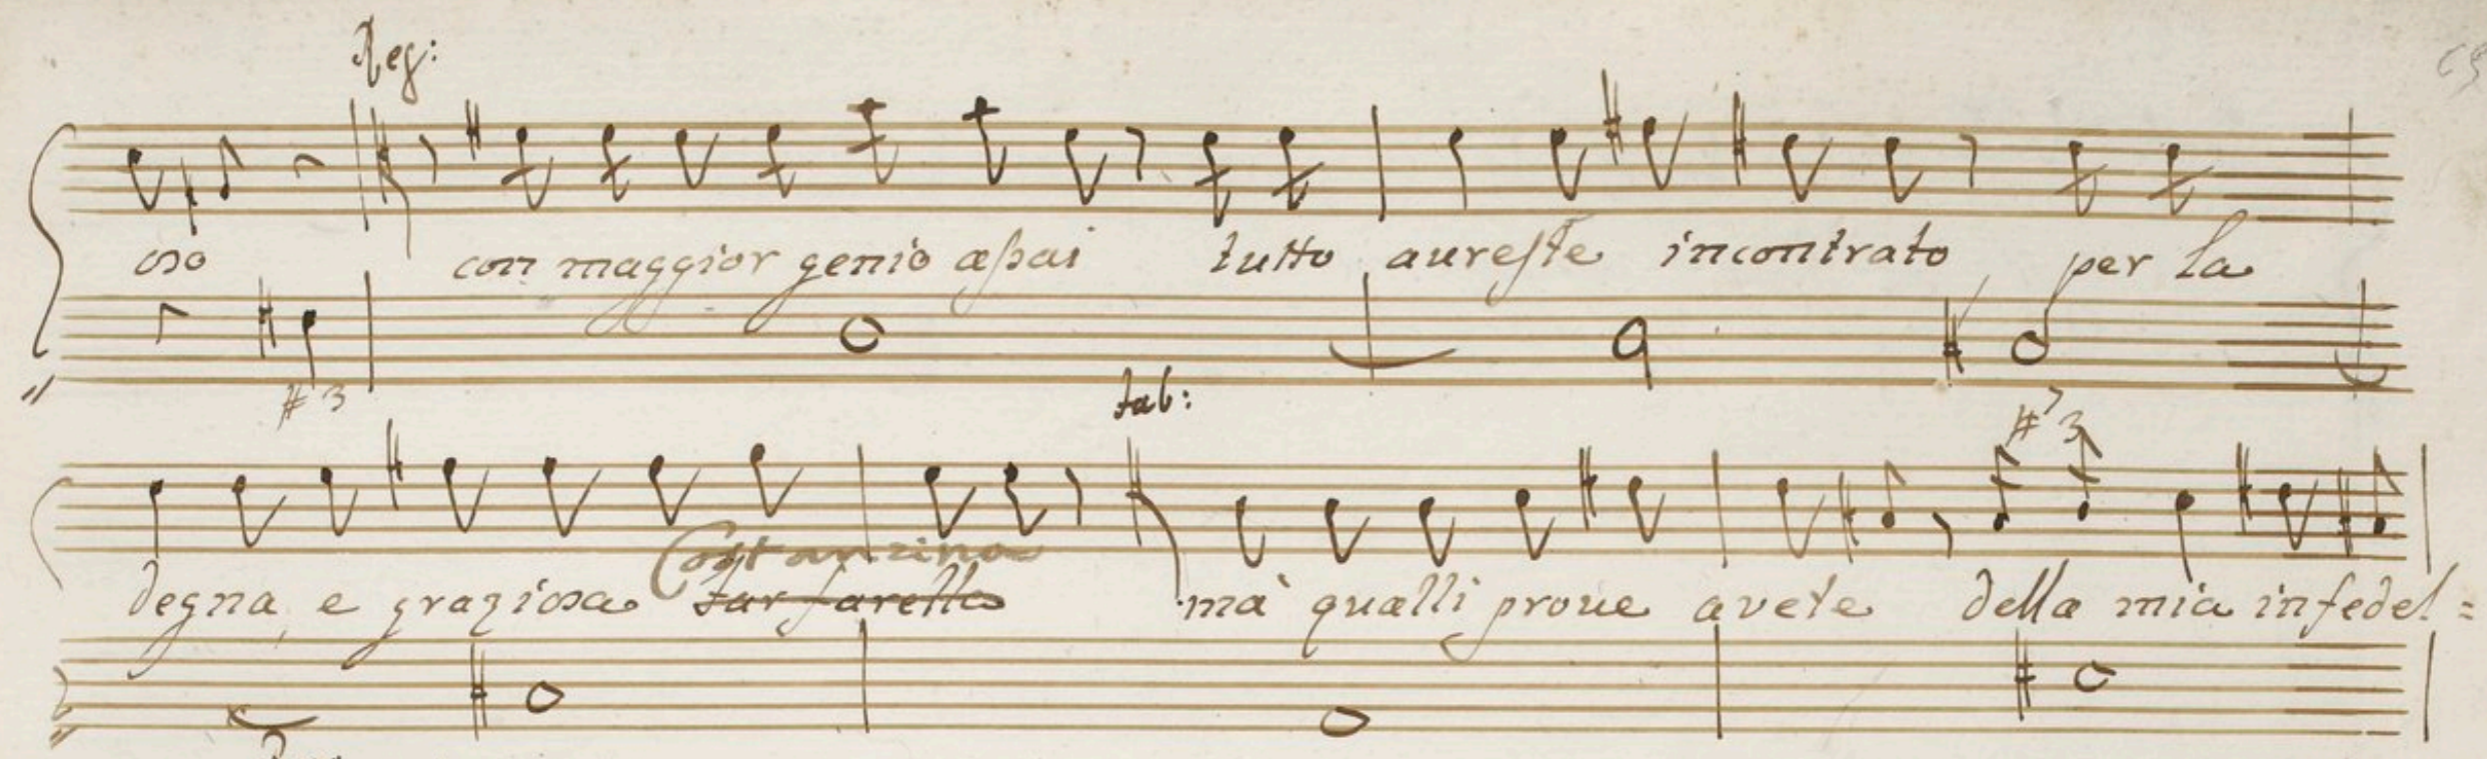 Reg:
oso con maggior genio assai tutto aureste incontrato per la
#3
fab:
#7 3
Costanzina
degna e graziosa farfarella mà qualli proue avete della mia infedel=